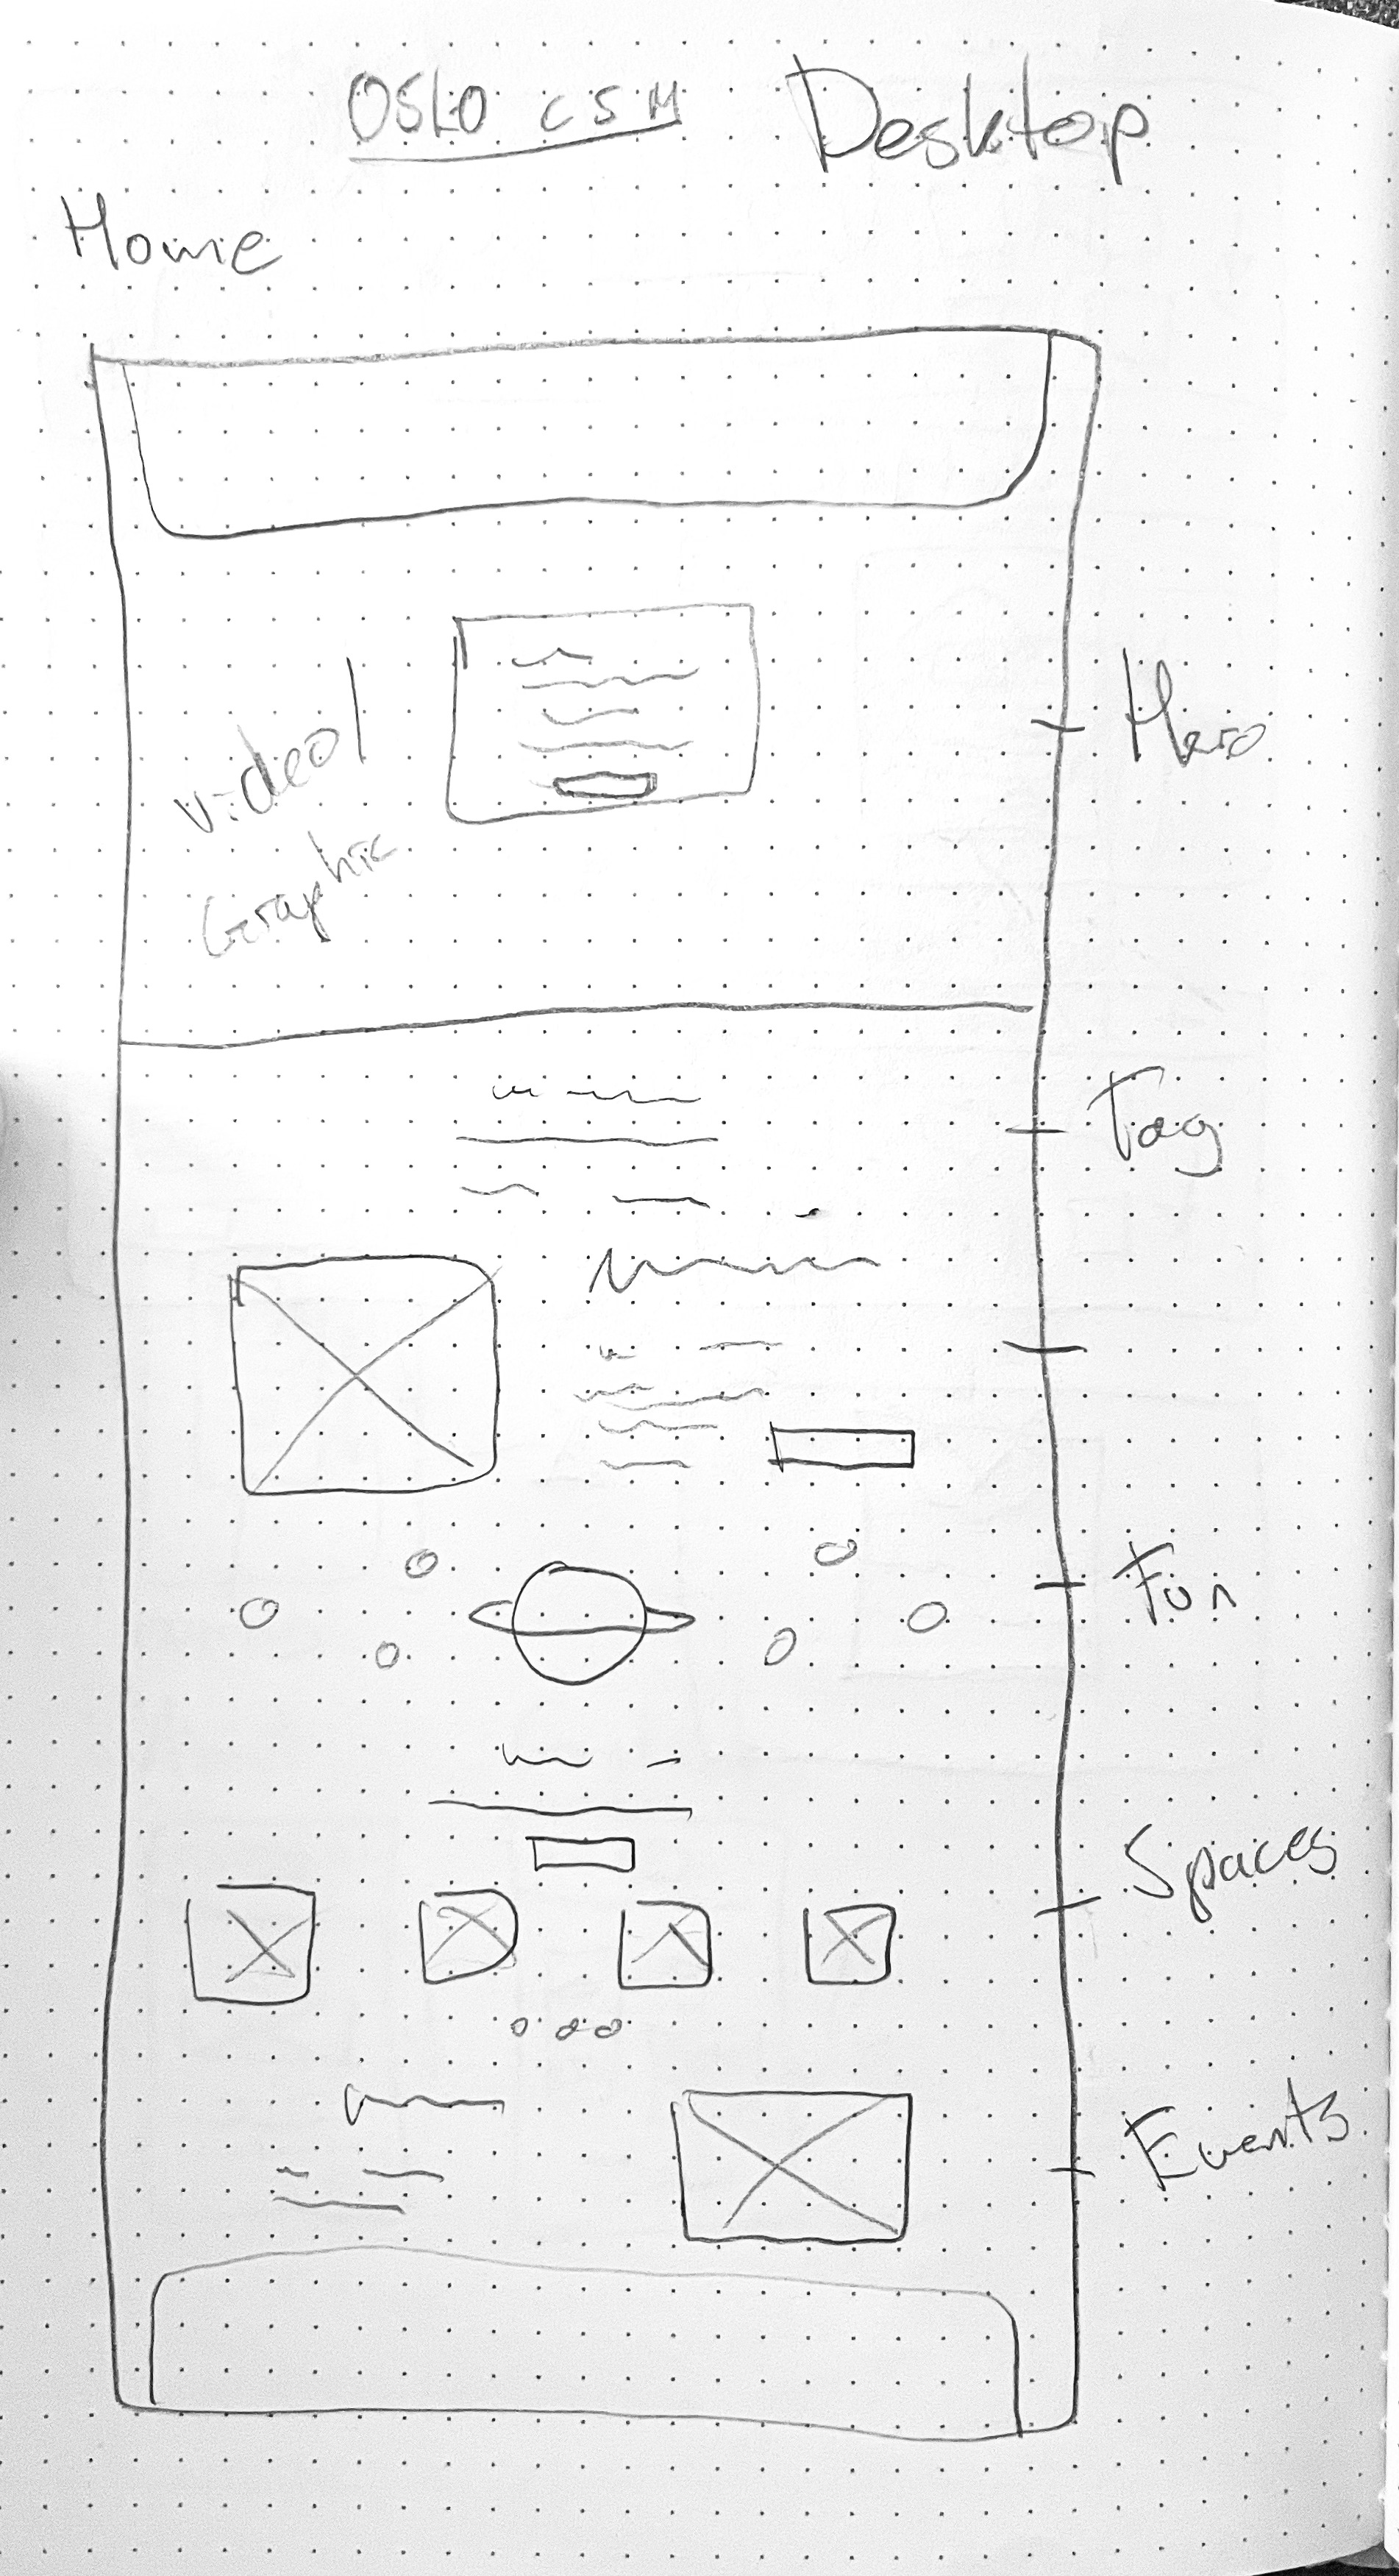 OSLO CSM Desktop
Home
Video/
Graphic
Hero
Tag
Fun
Spaces
Events